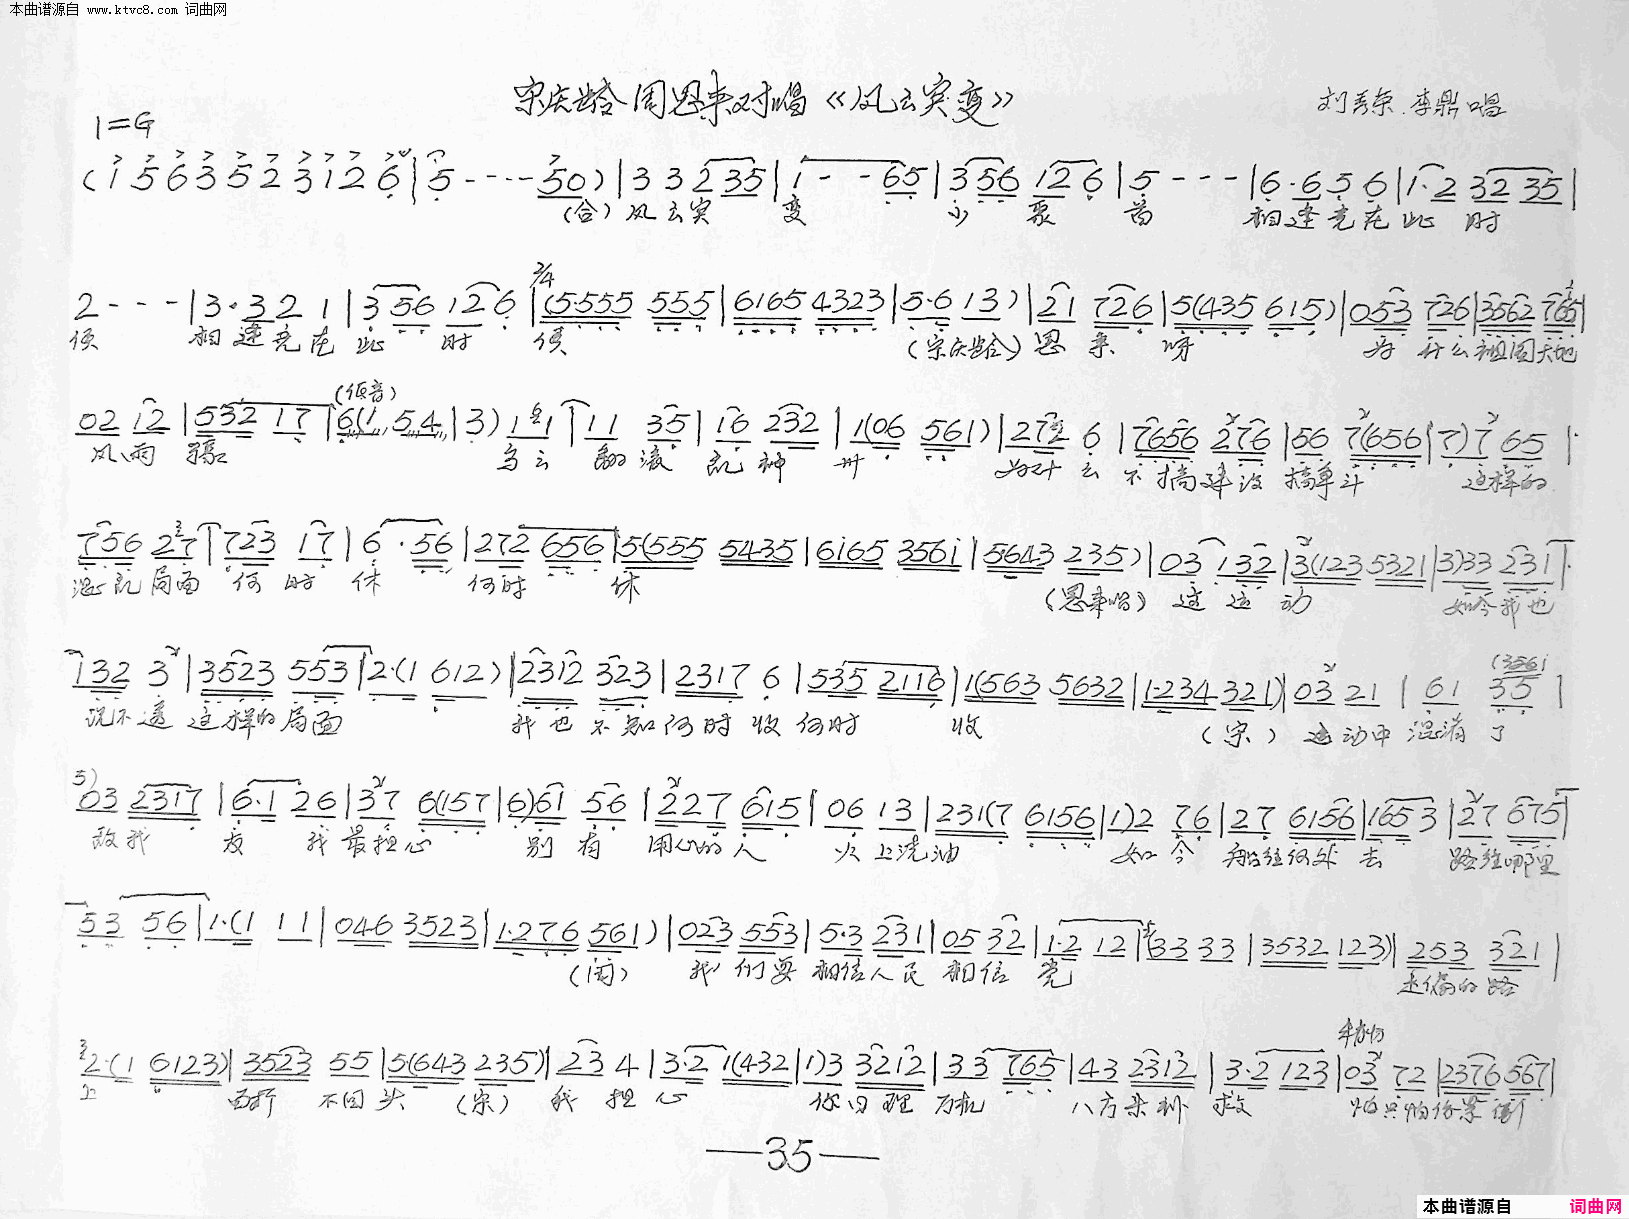 本曲谱源自 www.ktvc8.com 词曲网
宋庆龄周恩来对唱《风云突变》
刘秀荣.李鼎唱
1=G
(1 5 6 3 5 2 3 1 2 6|5 - - - - 50)|3 3 2 35|1 - - 65|3 56 12 6|5 - - -|6·6 5 6|1·2 32 35|
(合)风云突 变 少 聚 首 相逢竟在此 时
2 - - -|3·3 2 1|3 56 12 6|2/4(5·555 555|6165 4323|5·6 13)|21 726|5(435 615)|053 726|3562 765|
候 相逢竟在此 时 候 (宋庆龄)恩 来 呀 为 什么祖国大地
(低音)
02 12|532 17|6(1 54|3)1 1|11 35|16 232|1(06 561)|272 6|7656 276|56 7(656|7)7 65|
风雨 骤 乌云 翻滚 乱神 州 为什么 不搞建设 搞争斗 这样的
756 27|723 17|6·56|272 656|5(555 5435|6165 3561|5643 235)|03 132|3(123 5321|3)33 231|
混乱局面 何时 休 何时 休 (恩来唱) 这 运 动 如今我也
132 3|3523 553|2·(1 612)|2312 323|2317 6|535 2116|1(563 5632|1·234 321)|03 21|61 35|
(3561
说不透 这样的局面 我也不知何时收 何时 收 (宋) 运动中混淆了
5)
03 2317|6·1 26|37 6(157|6)61 56|227 615|06 13|231(7 6156|1)2 76|27 6156|1653|27 675|
敌我 友 我最担心 别有 用心的人 火上浇油 如今 船往何处去 路往哪里
53 56|1·(1 11|046 3523|1·276 561)|023 553|5·3 231|05 32|1·2 12|33 33|3532 123)|253 321|
(周) 我们要相信人民 相信 党 走偏的路
2·(1 6123)|3523 55|5(643 235)|23 4|3·2 1(432|1)3 3212|33 765|43 2312|3·2 123|03 72|2376 567|
上 不回头 (宋) 我 担心 你日理万机 八方来 救 怕只怕
—35—
本曲谱源自 词曲网